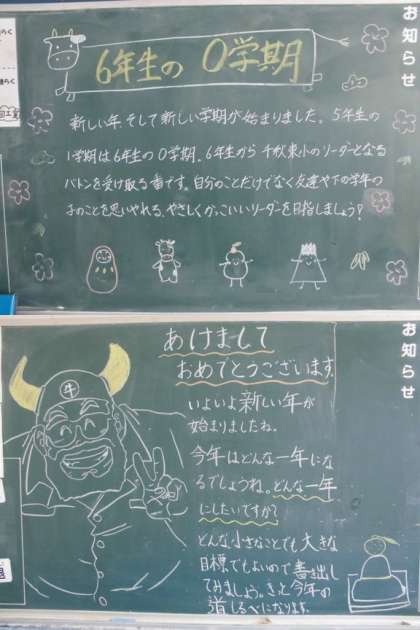 お知らせ
6年生の 0学期
新しい年、そして新しい学期が始まりました。5年生の
1学期は6年生の0学期。6年生から千秋東小のリーダーとなる
バトンを受け取る番です。自分のことだけでなく友達や下の学年の
子のことを思いやれる、やさしくかっこいいリーダーを目指しましょう!
お知らせ
あけまして
おめでとうございます。
いよいよ新しい年が
始まりましたね。
今年はどんな一年にな
るでしょうね。どんな一年
にしたいですか?
どんな小さなことでも大きな
目標でもよいので書き出し
てみましょう。きっと今年の
道しるべになります。
牛